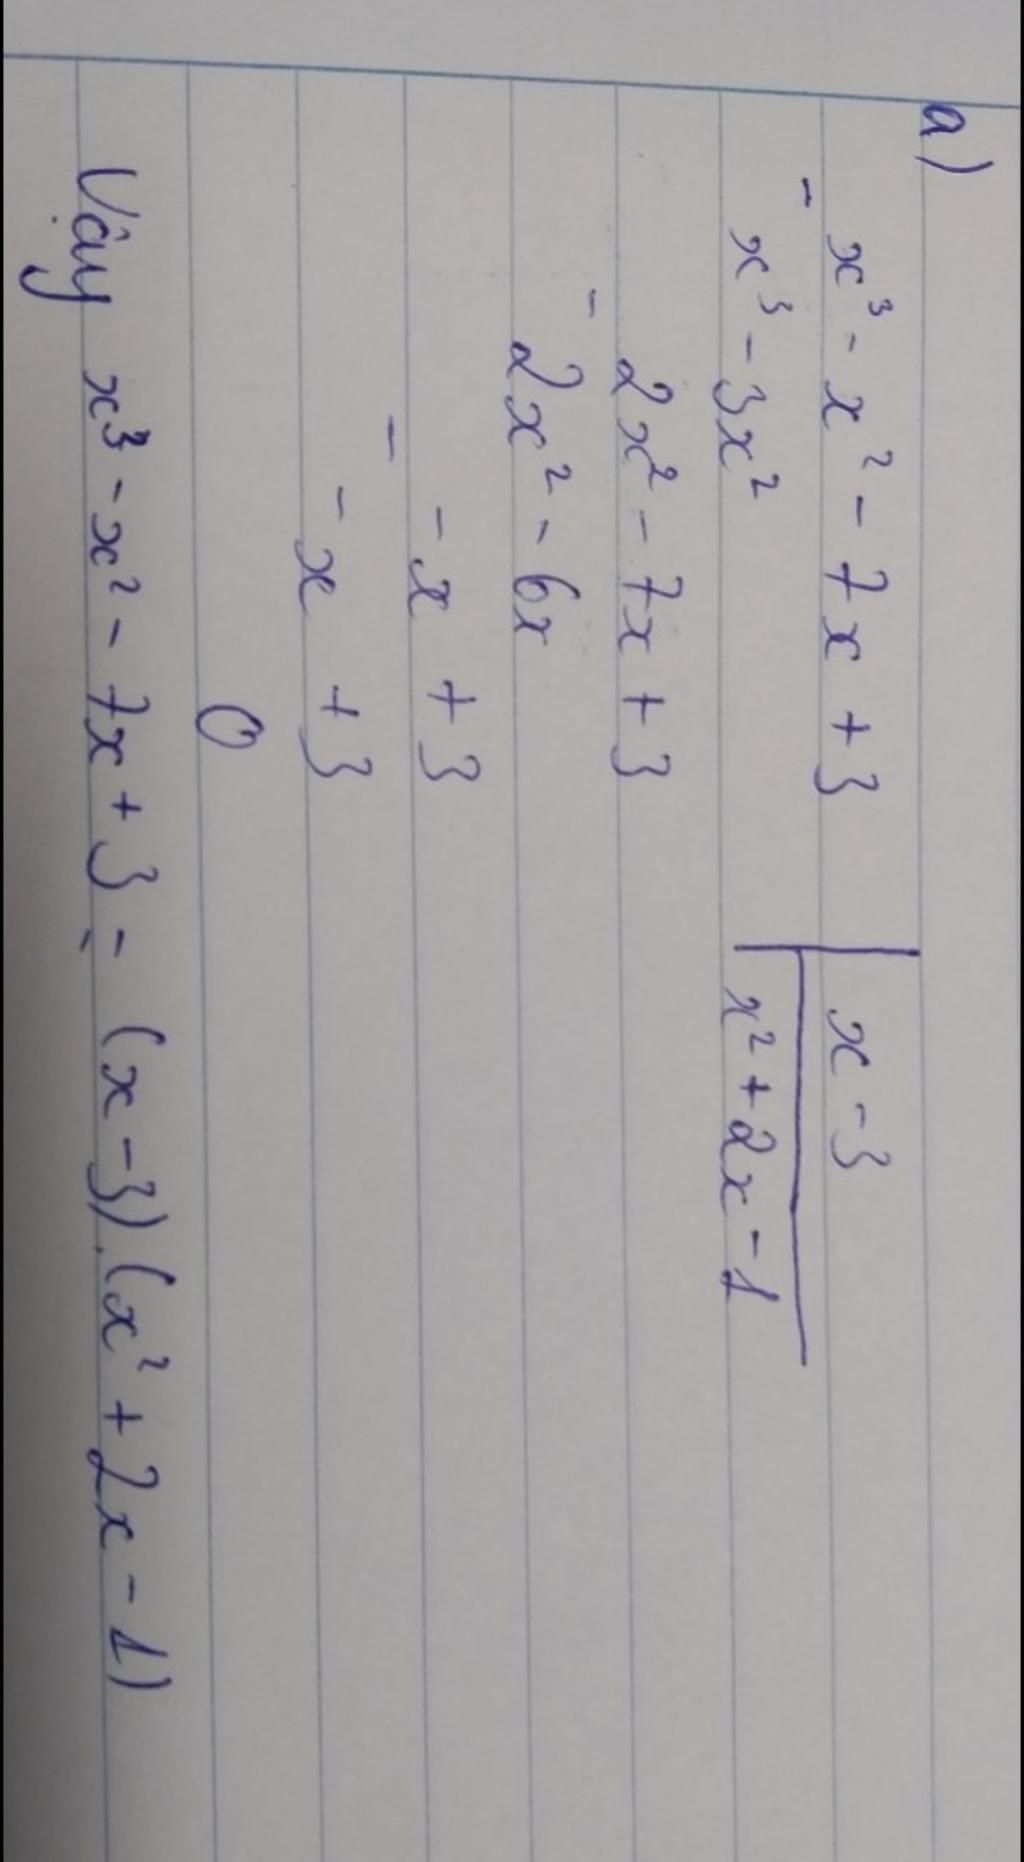 a)
x³ - x² - 7x + 3 | x - 3
- x³ - 3x² | x² + 2x - 1
2x² - 7x + 3
- 2x² - 6x
- x + 3
- - x + 3
0
Vậy x³ - x² - 7x + 3 = (x - 3).(x² + 2x - 1)